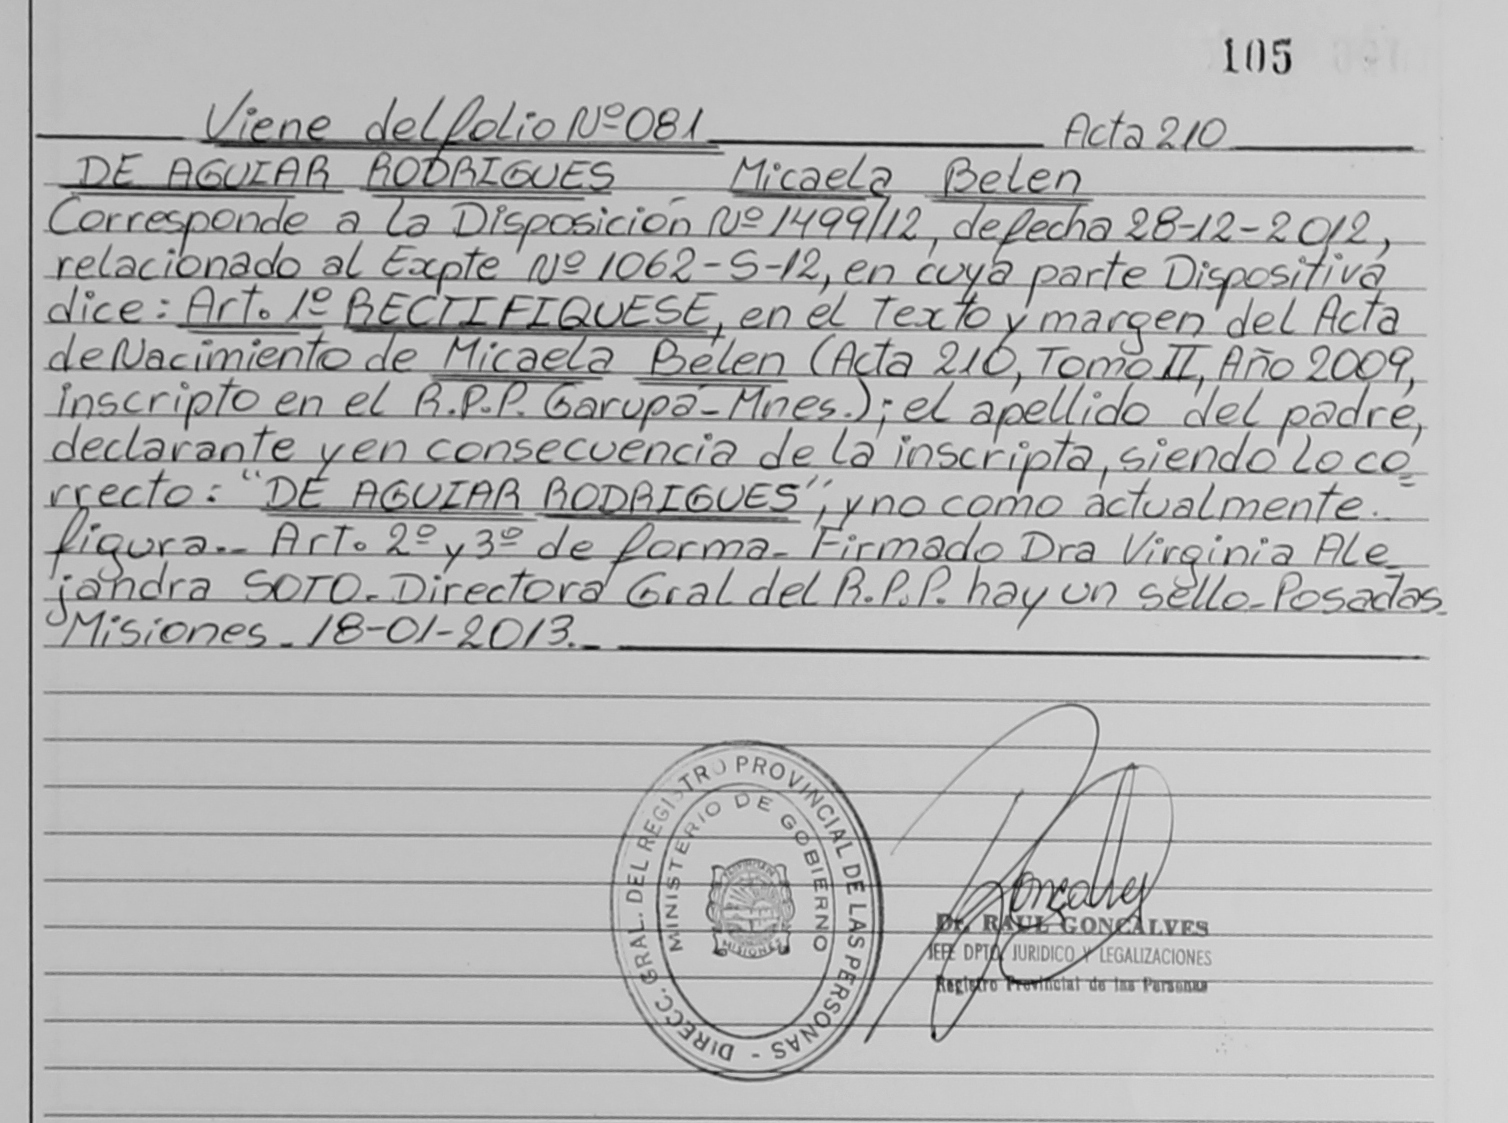 105
Viene del folio Nº 081 Acta 210
DE AGUIAR RODRIGUES Micaela Belen
Corresponde a la Disposición Nº 1499/12, de fecha 28-12-2012,
relacionado al Expte Nº 1062-S-12, en cuya parte Dispositiva
dice: Art. 1º RECTIFIQUESE, en el Texto y margen del Acta
de Nacimiento de Micaela Belen (Acta 210, Tomo II, Año 2009,
inscripto en el R.P.P. Garupa-Mnes.); el apellido del padre,
declarante y en consecuencia de la inscripta, siendo lo co
rrecto: "DE AGUIAR RODRIGUES", y no como actualmente.
figura.- Art. 2º y 3º de forma- Firmado Dra Virginia Ale
jandra SOTO- Directora Gral del R.P.P. hay un sello-Posadas
Misiones- 18-01-2013.-
DIRECC. GRAL. DEL REGISTRO PROVINCIAL DE LAS PERSONAS -
MINISTERIO DE GOBIERNO
MISIONES
Dr. RAUL GONCALVES
JEFE DPTO. JURIDICO Y LEGALIZACIONES
Registro Provincial de las Personas